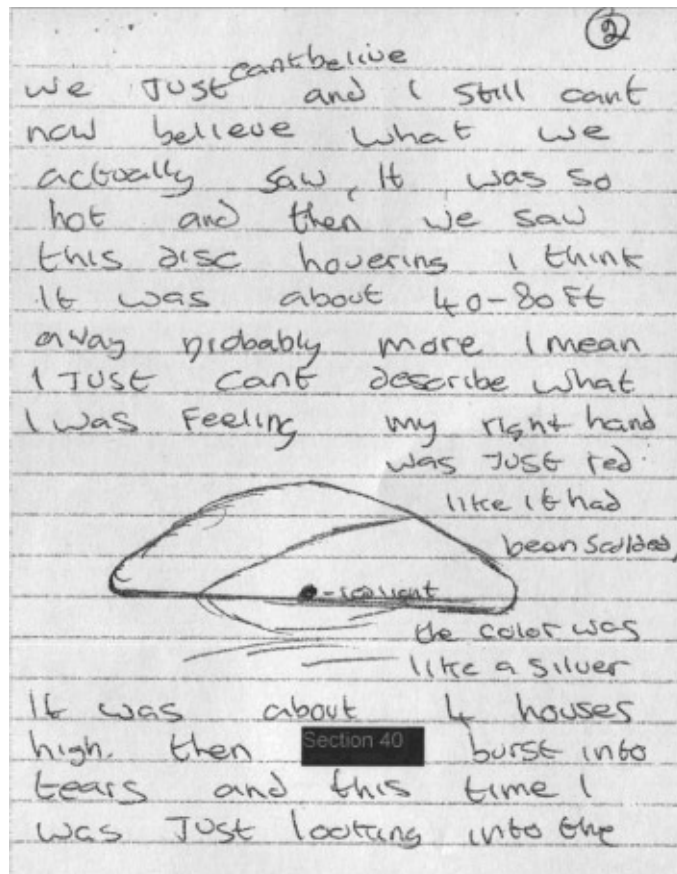 2
cant belive
we Just and I still cant
now believe what we
actually saw, It was so
hot and then we saw
this disc hovering I think
It was about 40-80ft
away probably more I mean
I Just cant describe what
I was Feeling my right hand
was Just red
like it had
been Scolded,
- red light
the color was
like a silver
It was about 4 houses
high. then Section 40 burst into
tears and this time I
was Just looking into the